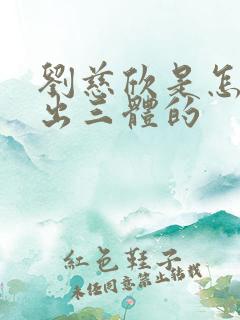 劉慈欣是怎
出三體的
紅色鞋子
未經同意禁止轉載